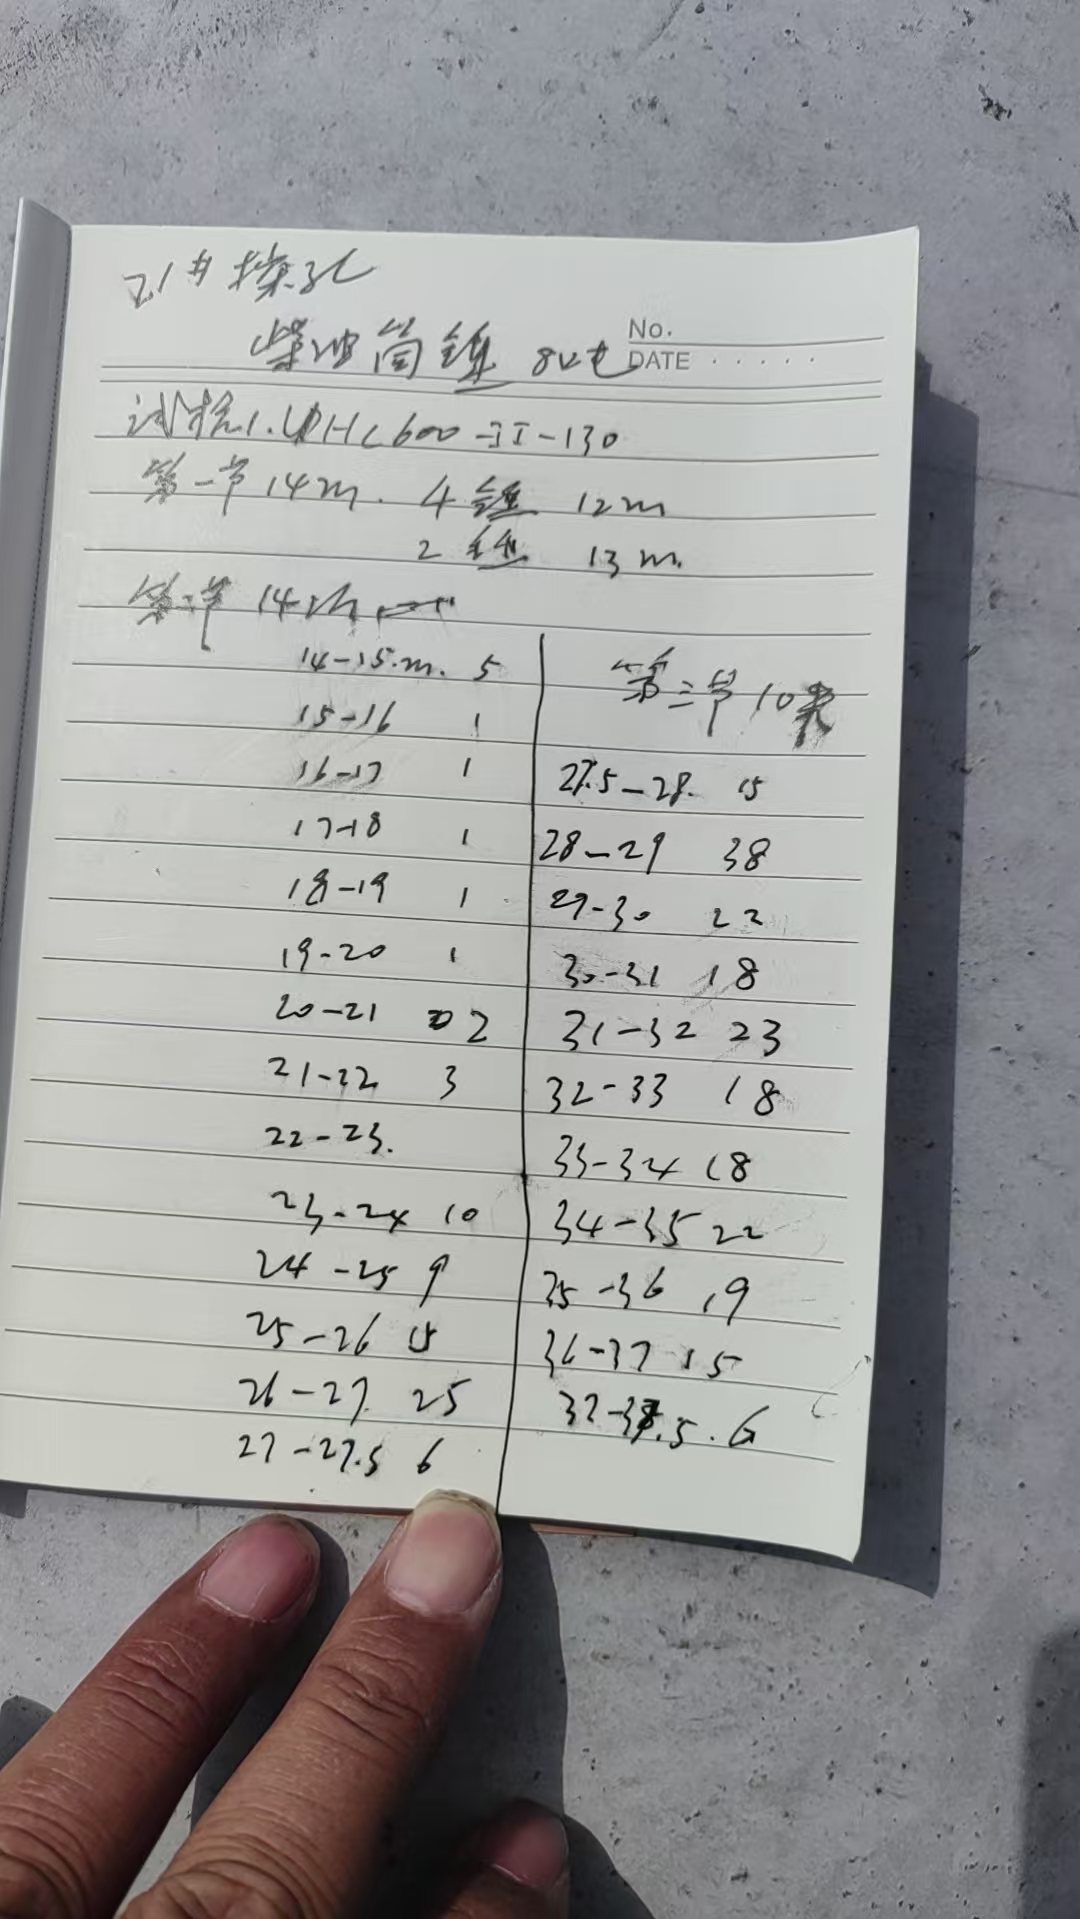 21#探孔
No.
柴油筒锤 8L屯
DATE
试桩1. UPHC600-II-130
第一节14m. 4锤 12m
2锤 13m.
第二节 14m
14-15.m. 5
15-16 1
16-17 1
17-18 1
18-19 1
19-20 1
20-21 2
21-22 3
22-23.
23-24 10
24-25 9
25-26 15
26-27. 25
27-27.5 6
第三节10米
27.5-28. 15
28-29 38
29-30 22
30-31 18
31-32 23
32-33 18
33-34 18
34-35 22
35-36 19
36-37 15
37-37.5. 6